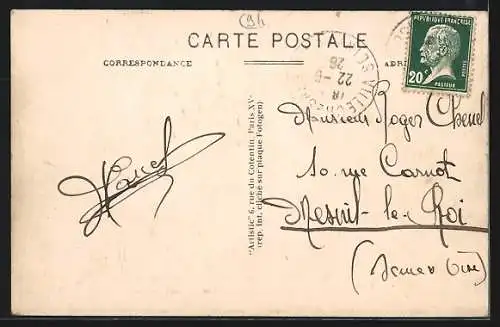 94
CARTE POSTALE
CORRESPONDANCE
REPUBLIQUE FRANÇAISE
20c
POSTES
PASTEUR
18
22 - 6
26
Monsieur Roger
10. rue Carnot
Mesnil-le-Roi
(Seine & Oise)
"Artistic" 6, rue du Cotentin, Paris-XVe
(rep. int. cliché sur plaque Fotogen)